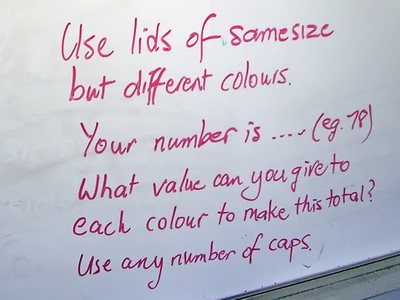 Use lids of samesize
but different colours.
Your number is .... (eg. 78)
What value can you give to
each colour to make this total?
Use any number of caps.